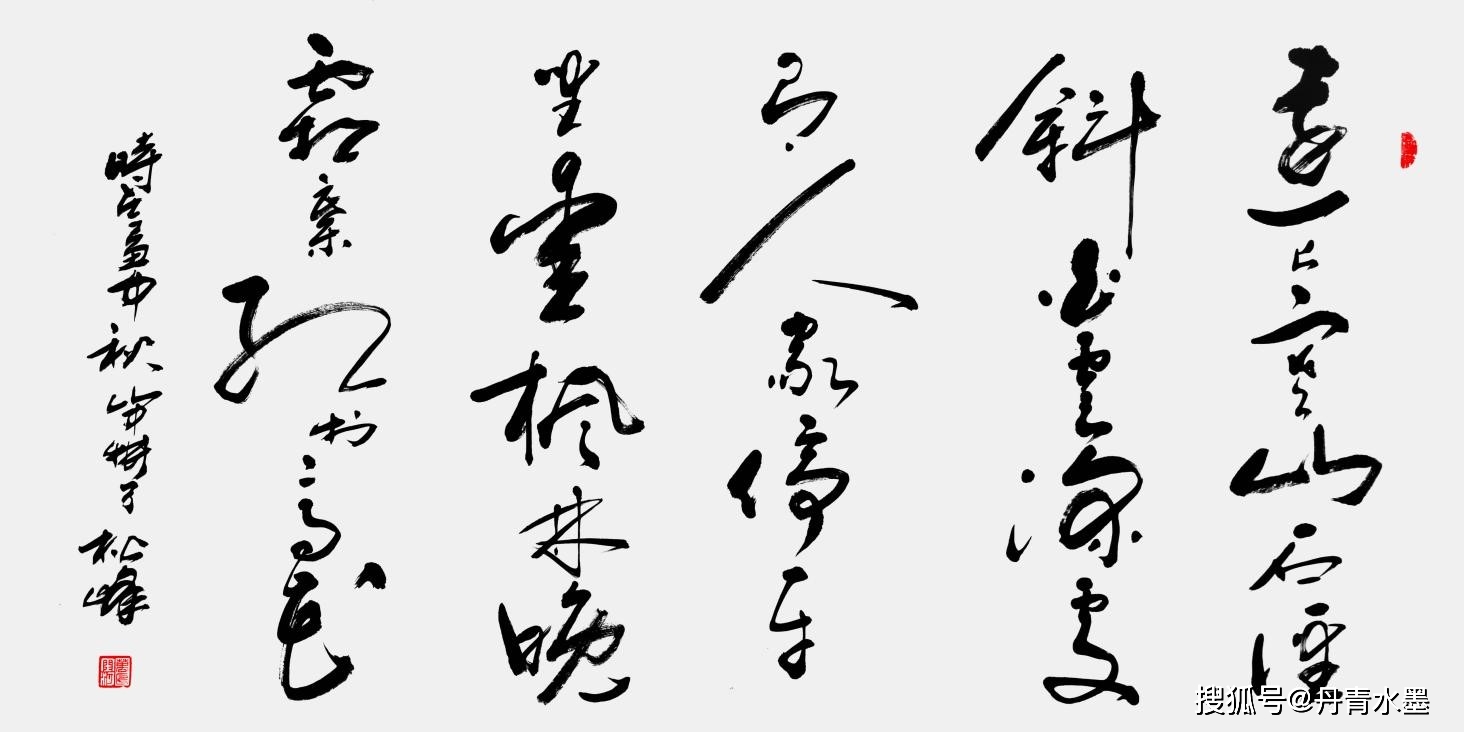 遠上寒山石徑
斜白雲深處
有人家停車
坐愛楓林晚
霜葉紅於二月花
時中秋松峰
搜狐号@丹青水墨